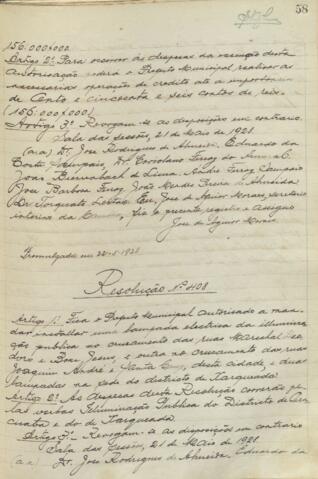 58
156.000$000.
Artigo 2º. Para occorrer ás despesas da execução desta
autorisação poderá o Prefeito Municipal realisar as
necessarias operação de credito até a importancia
de Cento e cincoenta e seis contos de reis.
(156:000$000)
Artigo 3º. Revogam-se as disposições em contrario.
Sala das Sessões, 21 de Maio de 1928.
(a.a.) Dr. José Rodrigues de Almeida, Eduardo da
Costa Sampaio, Dr. Coriolano Ferraz do Amaral,
João Bierrenbach de Lima, André Ferraz Sampaio
José Barbosa Ferraz, João Mendes Pereira de Almeida
Dr. Torquato Leitão. Eu, José de Aguiar Moraes, secretario
interino da Camara, fiz o presente registro e assigno
José de Aguiar Moraes
Promulgada em 22-5-1928
Resolução Nº 408
Artigo 1º. Fica o Prefeito Municipal autorisado a man-
dar installar uma lampada electrica da illumina-
ção publica no cruzamento das ruas Marechal Deo-
doro e Bom Jesus, e outra no cruzamento das ruas
Joaquim André e Santa Cruz, desta cidade, e duas
lampadas na séde do districto de Xarqueada.
Artigo 2º. As despesas desta Resolução correrão pe-
las verbas Illuminação Publica do Districto de Pira-
cicaba e do de Xarqueada.
Artigo 3º. Revogam-se as disposições em contrario
Sala das Sessões, 21 de Maio de 1928.
(a.a.) Dr. José Rodrigues de Almeida, Eduardo da